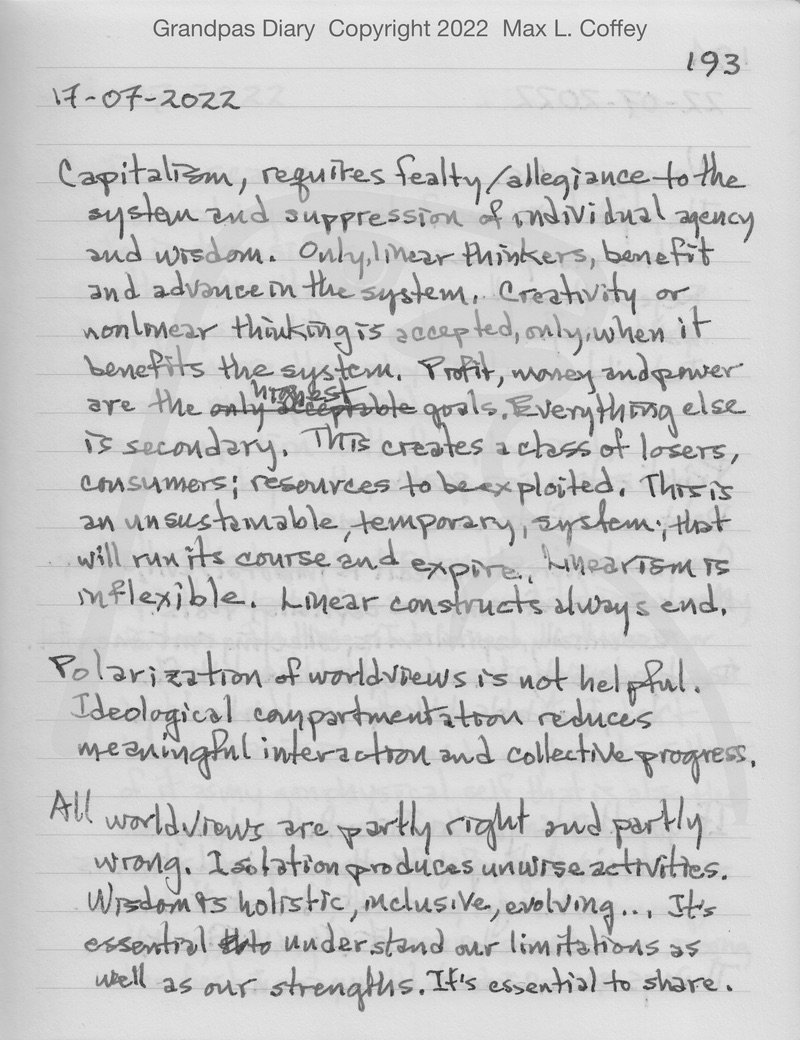 Grandpas Diary Copyright 2022 Max L. Coffey
193
17-07-2022
Capitalism, requires fealty/allegiance to the
system and suppression of individual agency
and wisdom. Only, linear thinkers, benefit
and advance in the system. Creativity or
nonlinear thinking is accepted, only, when it
benefits the system. Profit, money and power
highest
are the only acceptable goals. Everything else
is secondary. This creates a class of losers,
consumers; resources to be exploited. This is
an unsustainable, temporary, system; that
will run its course and expire. Linearism is
inflexible. Linear constructs always end.
Polarization of worldviews is not helpful.
Ideological compartmentation reduces
meaningful interaction and collective progress.
All worldviews are partly right and partly
wrong. Isolation produces unwise activities.
Wisdom is holistic, inclusive, evolving... It's
essential to understand our limitations as
well as our strengths. It's essential to share.